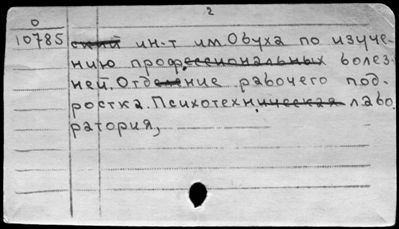 2
О
10785 ский ин-т им. Обуха по изуче-
нию профессиональных болез-
ней. Отделение рабочего под-
ростка. Психотехническая лабо-
ратория,